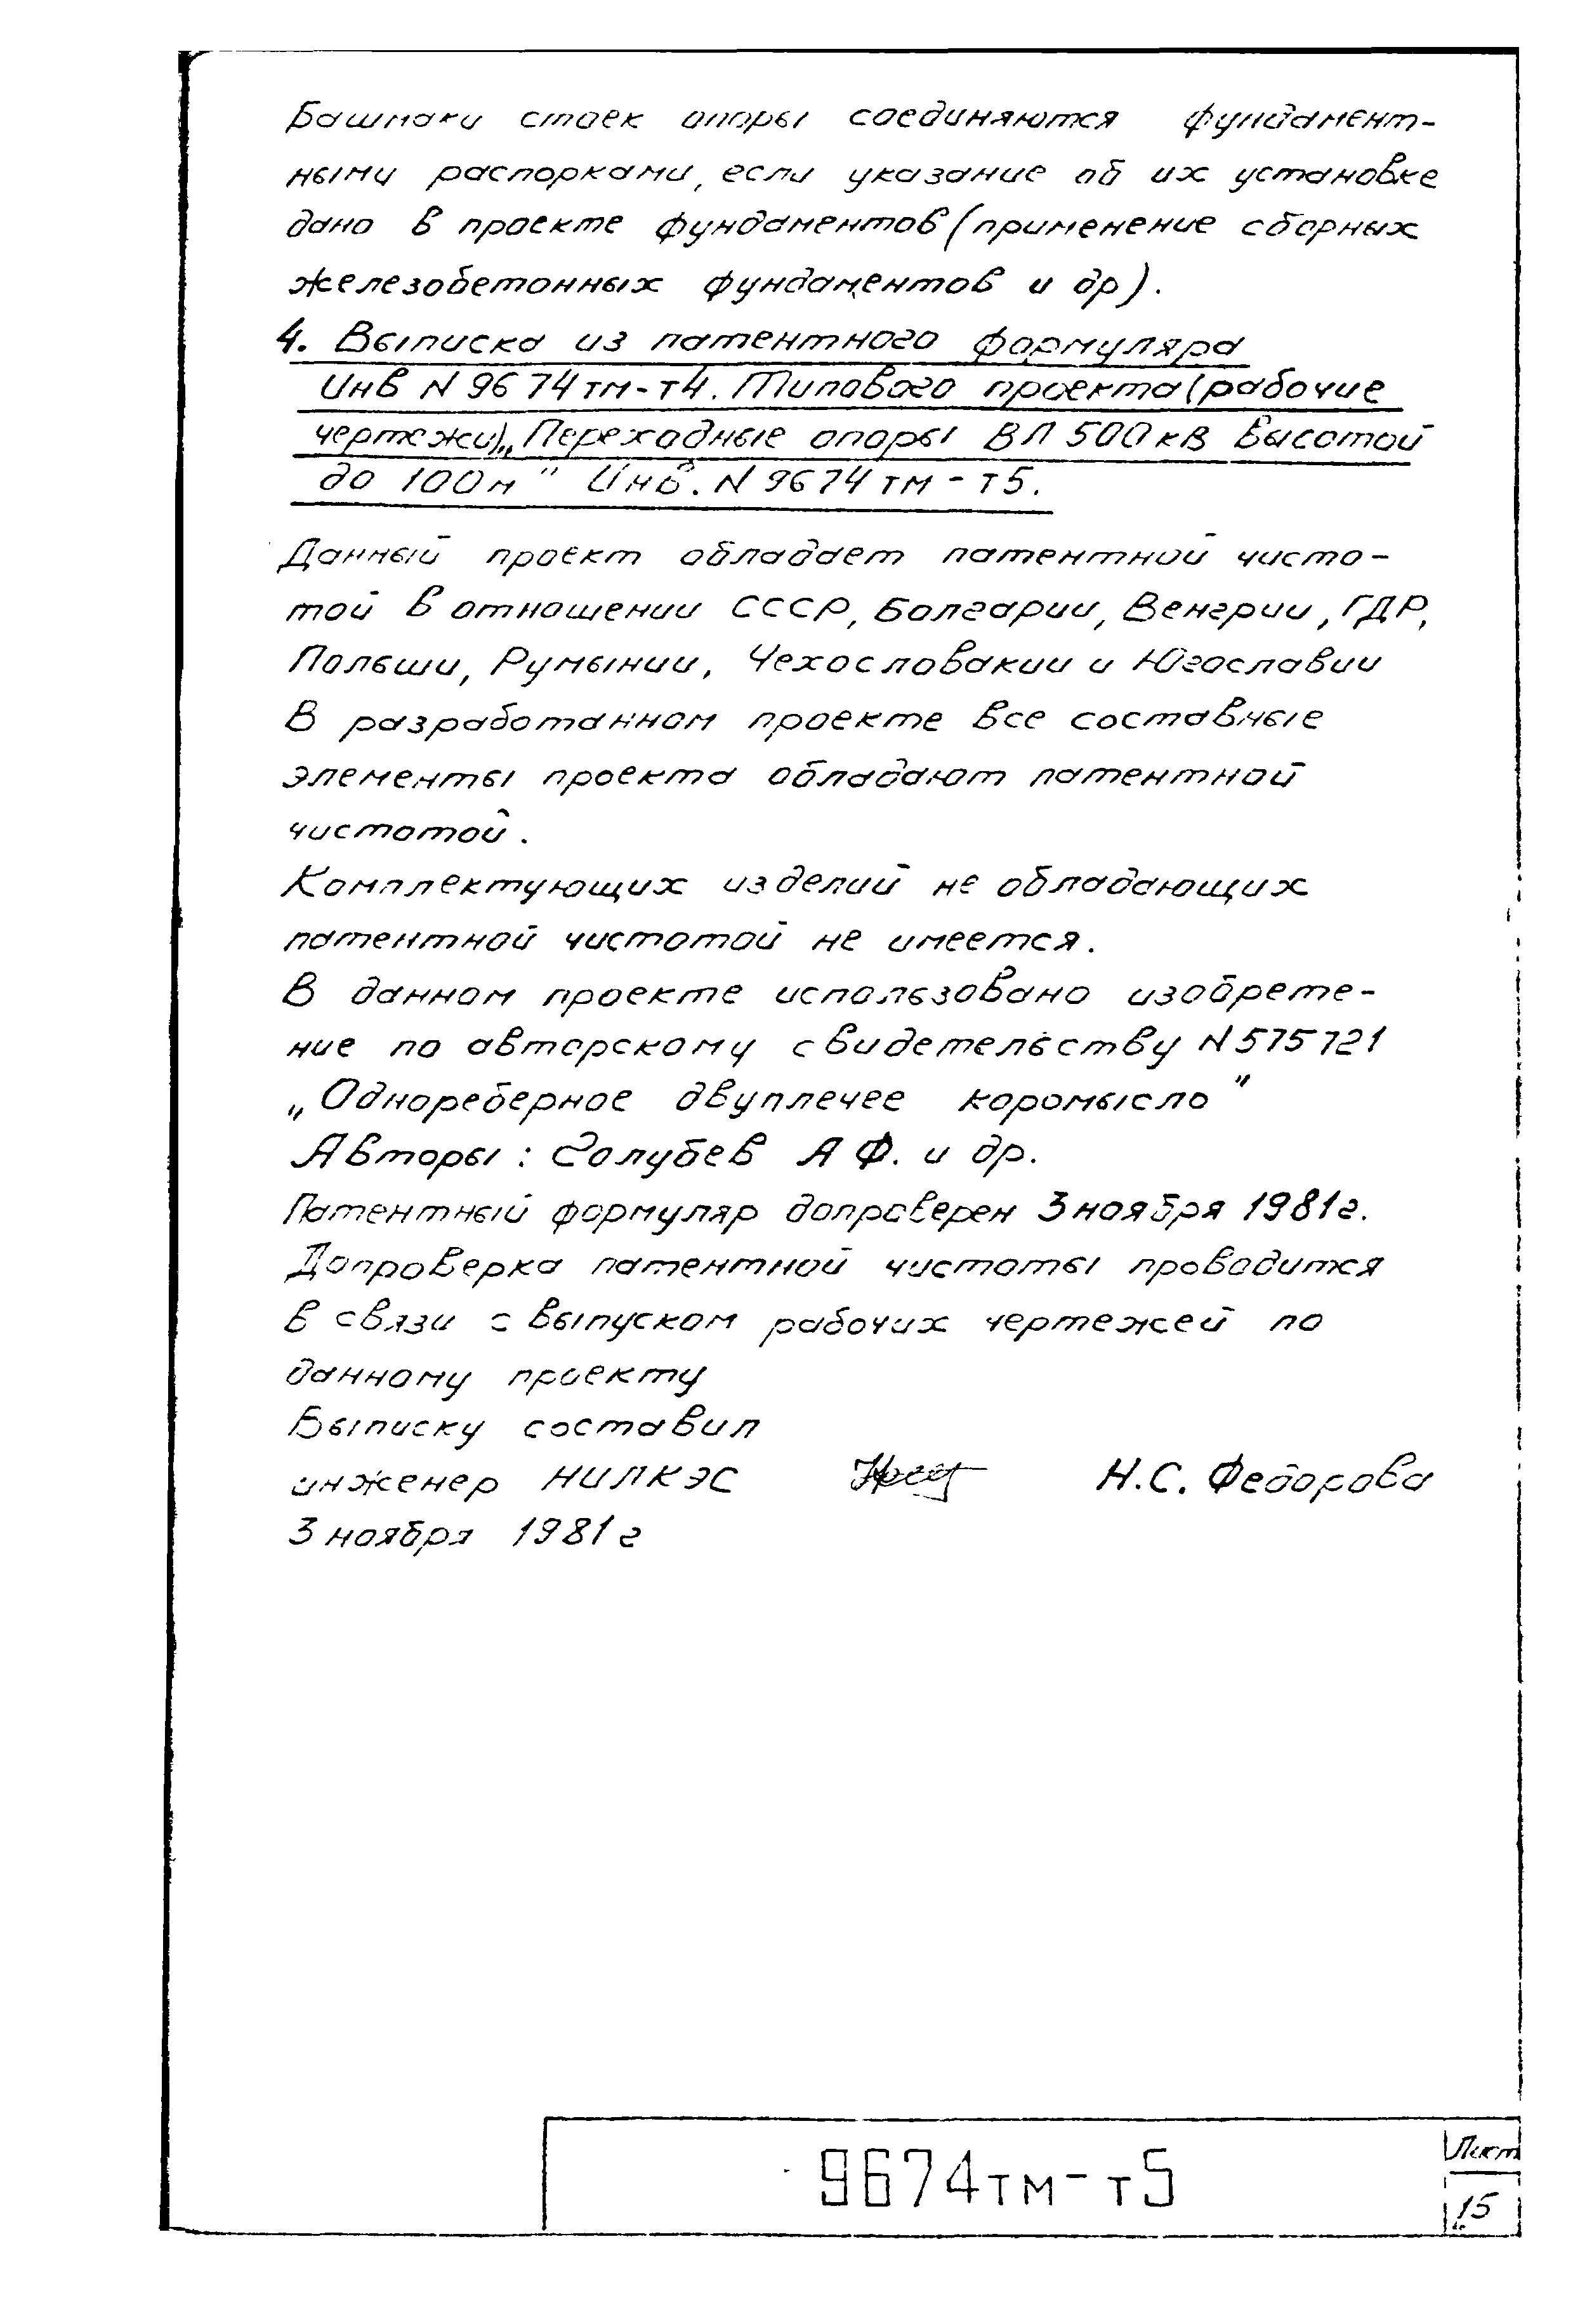 Башмаки стоек опоры соединяются фундамент-
ными распорками, если указание об их установке
дано в проекте фундаментов (применение сборных
железобетонных фундаментов и др).
4. Выписка из патентного формуляра
Инв N 9674тм-т4. Типового проекта (рабочие
чертежи) „Переходные опоры ВЛ 500кВ высотой
до 100м" Инв. N 9674тм-т5.
Данный проект обладает патентной чисто-
той в отношении СССР, Болгарии, Венгрии, ГДР,
Польши, Румынии, Чехословакии и Югославии
В разработанном проекте все составные
элементы проекта обладают патентной
чистотой.
Комплектующих изделий не обладающих
патентной чистотой не имеется.
В данном проекте использовано изобрете-
ние по авторскому свидетельству N 575721
„Однореберное двуплечее коромысло"
Авторы: Голубев А Ф. и др.
Патентный формуляр допроверен 3 ноября 1981г.
Допроверка патентной чистоты проводится
в связи с выпуском рабочих чертежей по
данному проекту
Выписку составил
инженер НИЛКЭС Н.С. Федорова
3 ноября 1981г
9674тм-т5
Лист
15